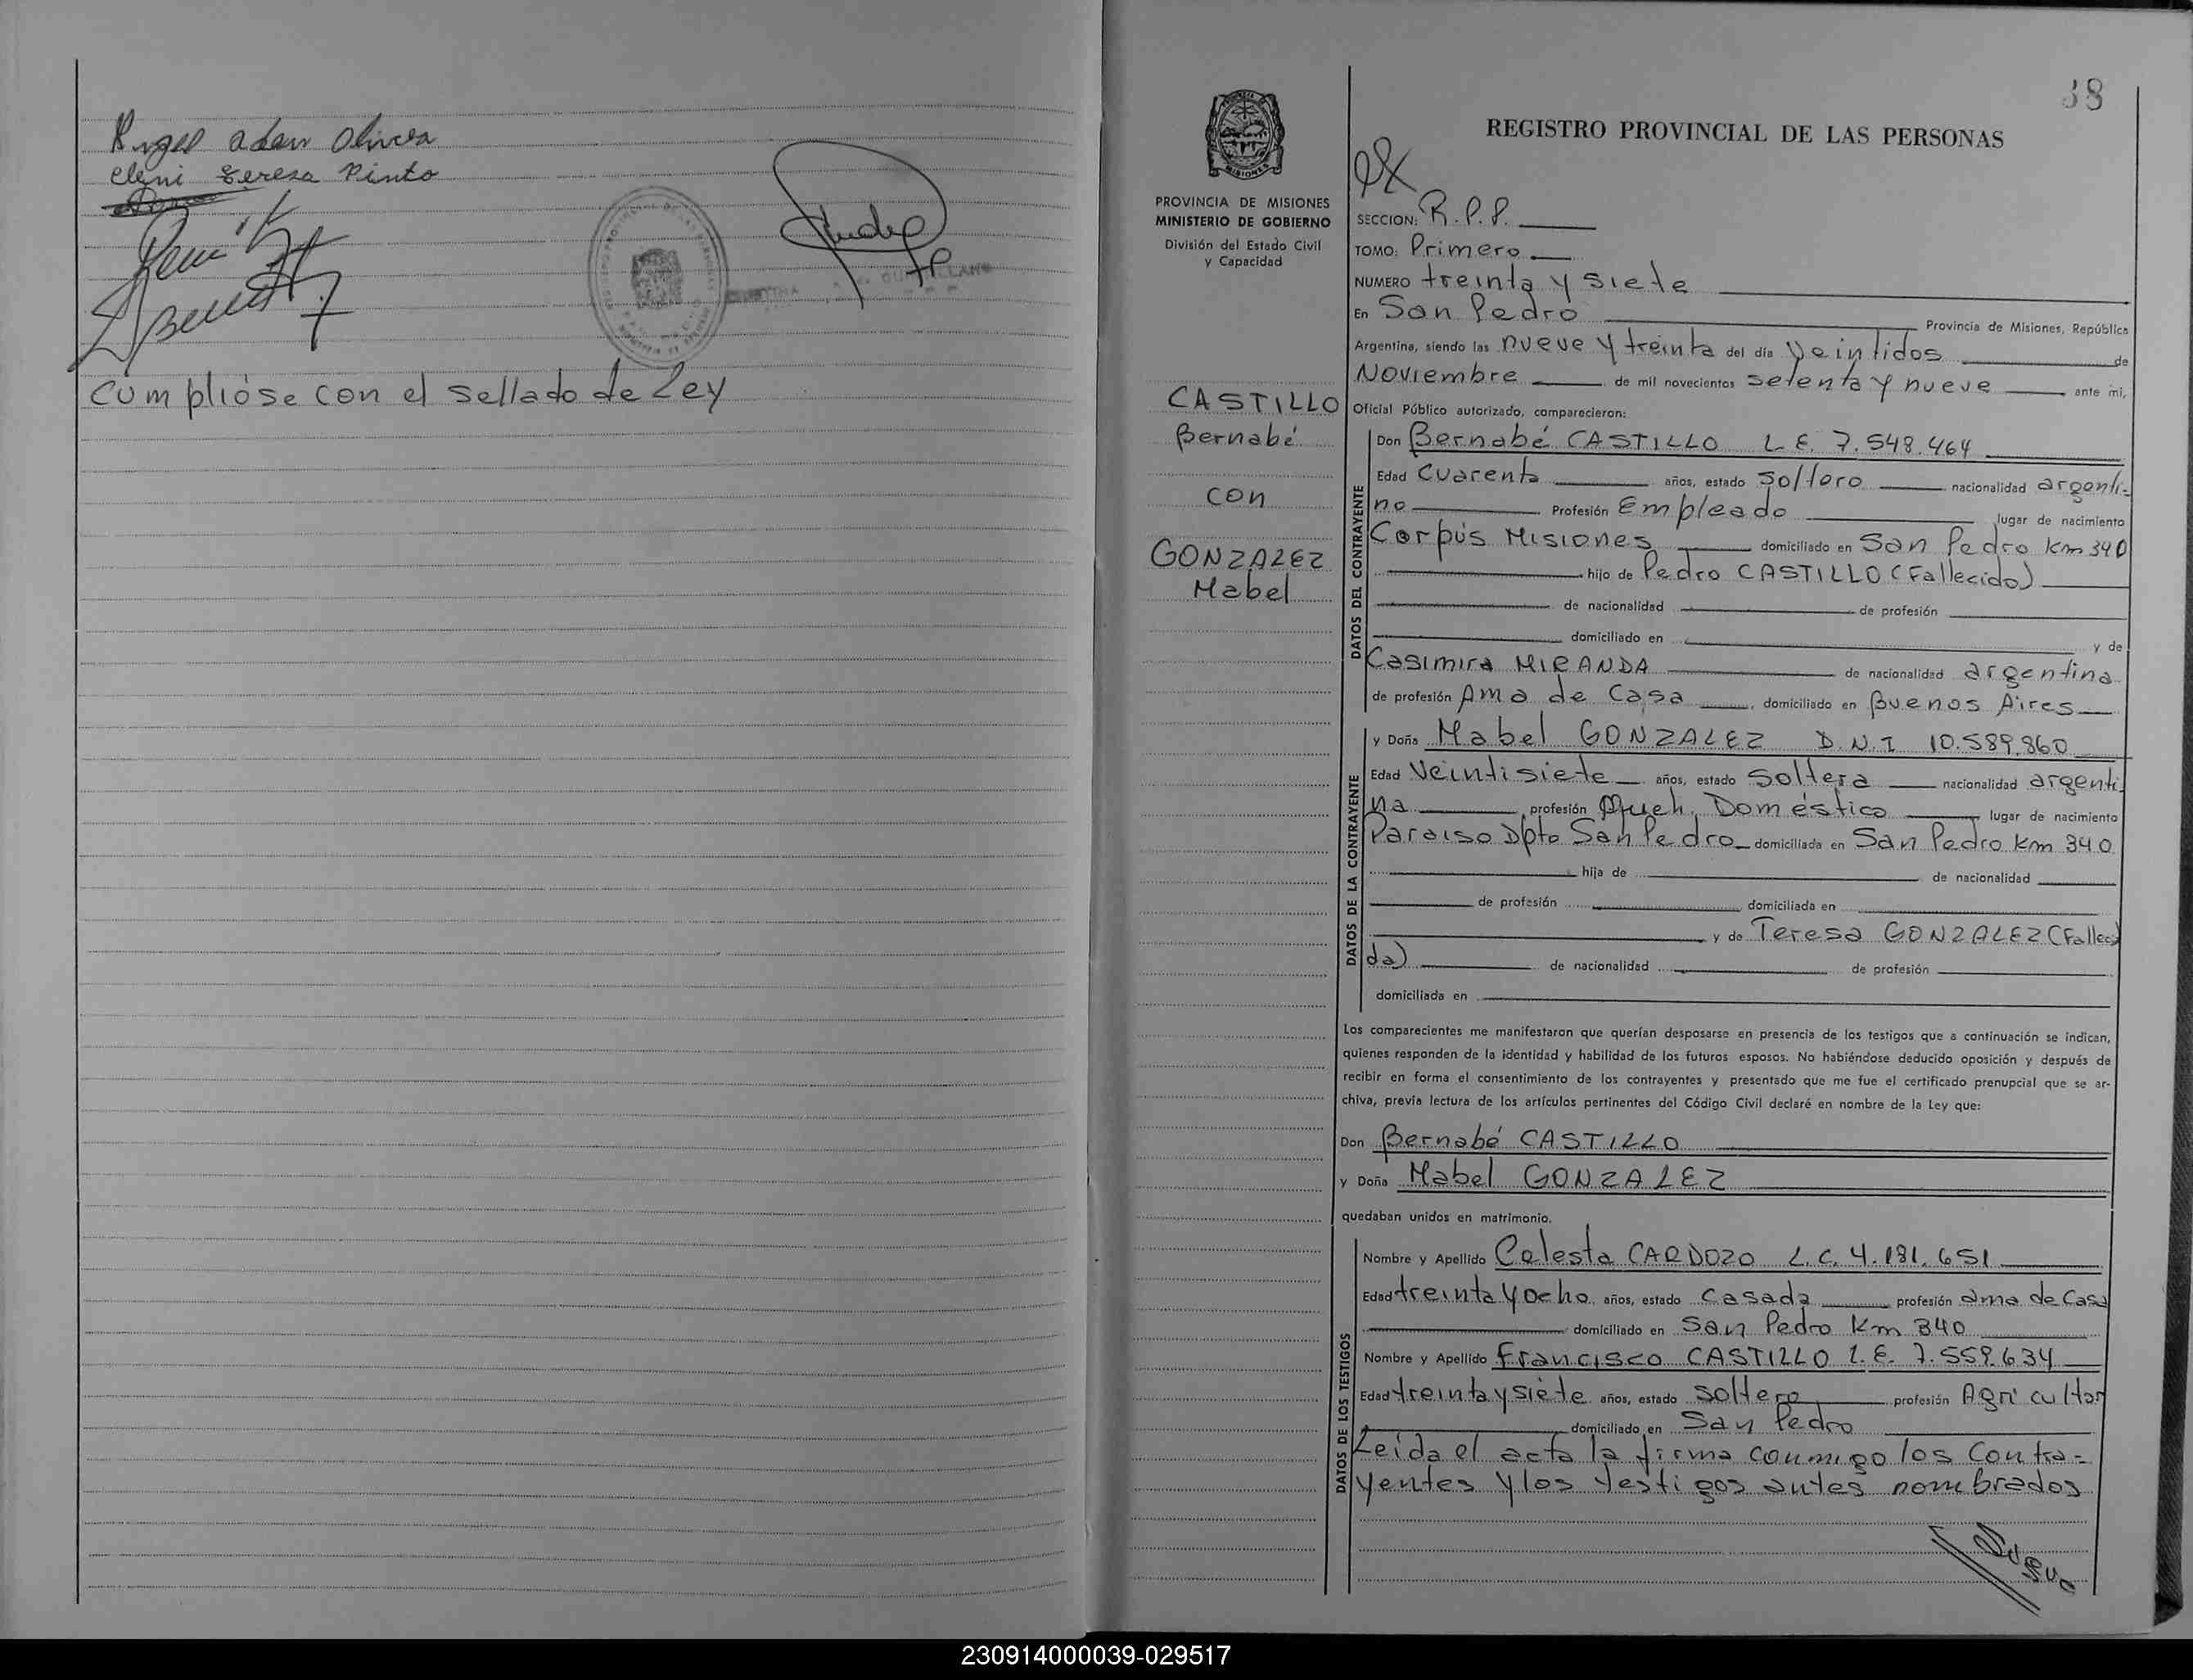 Angel adan Olivera
Cleni Teresa Pinto
Cumplióse con el sellado de Ley
38
REGISTRO PROVINCIAL DE LAS PERSONAS
MISIONES
PROVINCIA DE MISIONES
MINISTERIO DE GOBIERNO
División del Estado Civil
y Capacidad
CASTILLO
Bernabé
con
GONZALEZ
Mabel
SECCION: R.P.P.
TOMO: Primero
NUMERO treinta y siete
En San Pedro Provincia de Misiones, República
Argentina, siendo las nueve y treinta del día Veintidos de
Noviembre de mil novecientos setenta y nueve ante mi,
Oficial Público autorizado, comparecieron:
DATOS DEL CONTRAYENTE
Don Bernabé CASTILLO L.E. 7.548.464
Edad Cuarenta años, estado Soltero nacionalidad argenti-
no Profesión Empleado lugar de nacimiento
Corpus Misiones domiciliado en San Pedro Km 340
hijo de Pedro CASTILLO (Fallecido)
de nacionalidad de profesión
domiciliado en y de
Casimira MIRANDA de nacionalidad argentina
de profesión Ama de Casa, domiciliado en Buenos Aires
DATOS DE LA CONTRAYENTE
y Doña Mabel GONZALEZ D.N.I 10.589.860
Edad Veintisiete años, estado Soltera nacionalidad argenti-
na profesión Queh. Doméstico lugar de nacimiento
Paraiso Dpto San Pedro domiciliada en San Pedro Km 340
hija de de nacionalidad
de profesión domiciliada en
y de Teresa GONZALEZ (Falleci
da) de nacionalidad de profesión
domiciliada en
Los comparecientes me manifestaron que querían desposarse en presencia de los testigos que a continuación se indican,
quienes responden de la identidad y habilidad de los futuros esposos. No habiéndose deducido oposición y después de
recibir en forma el consentimiento de los contrayentes y presentado que me fue el certificado prenupcial que se ar-
chiva, previa lectura de los artículos pertinentes del Código Civil declaré en nombre de la Ley que:
Don Bernabé CASTILLO
y Doña Mabel GONZALEZ
quedaban unidos en matrimonio.
DATOS DE LOS TESTIGOS
Nombre y Apellido Celesta CARDOZO L.C. 4.181.651
Edad treinta y ocho años, estado Casada profesión ama de Casa
domiciliado en San Pedro Km 340
Nombre y Apellido Francisco CASTILLO L.E. 7.559.634
Edad treinta y siete años, estado soltero profesión Agricultor
domiciliado en San Pedro
Leida el acta la firma conmigo los Contra=
yentes y los testigos antes nombrados
230914000039-029517